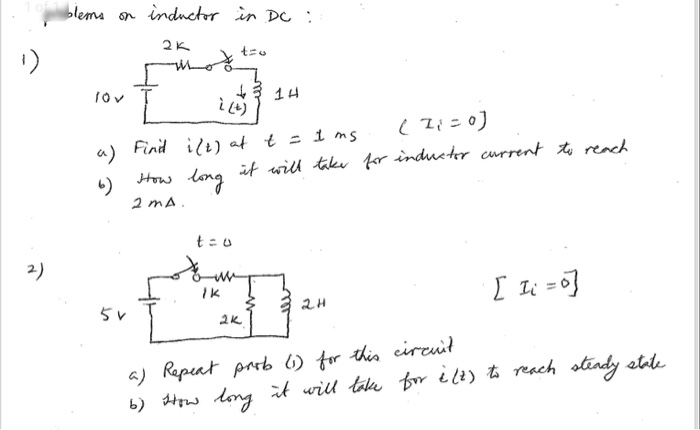 on inductor in DC :
1)
2K
t=0
10v
i(t)
1H
a) Find i(t) at t = 1 ms (Ii=0]
b) How long it will take for inductor current to reach
2 mA.
2)
t=0
1K
5v
2K
2H
[Ii=0]
a) Repeat prob (1) for this circuit
b) How long it will take for i(t) to reach steady state